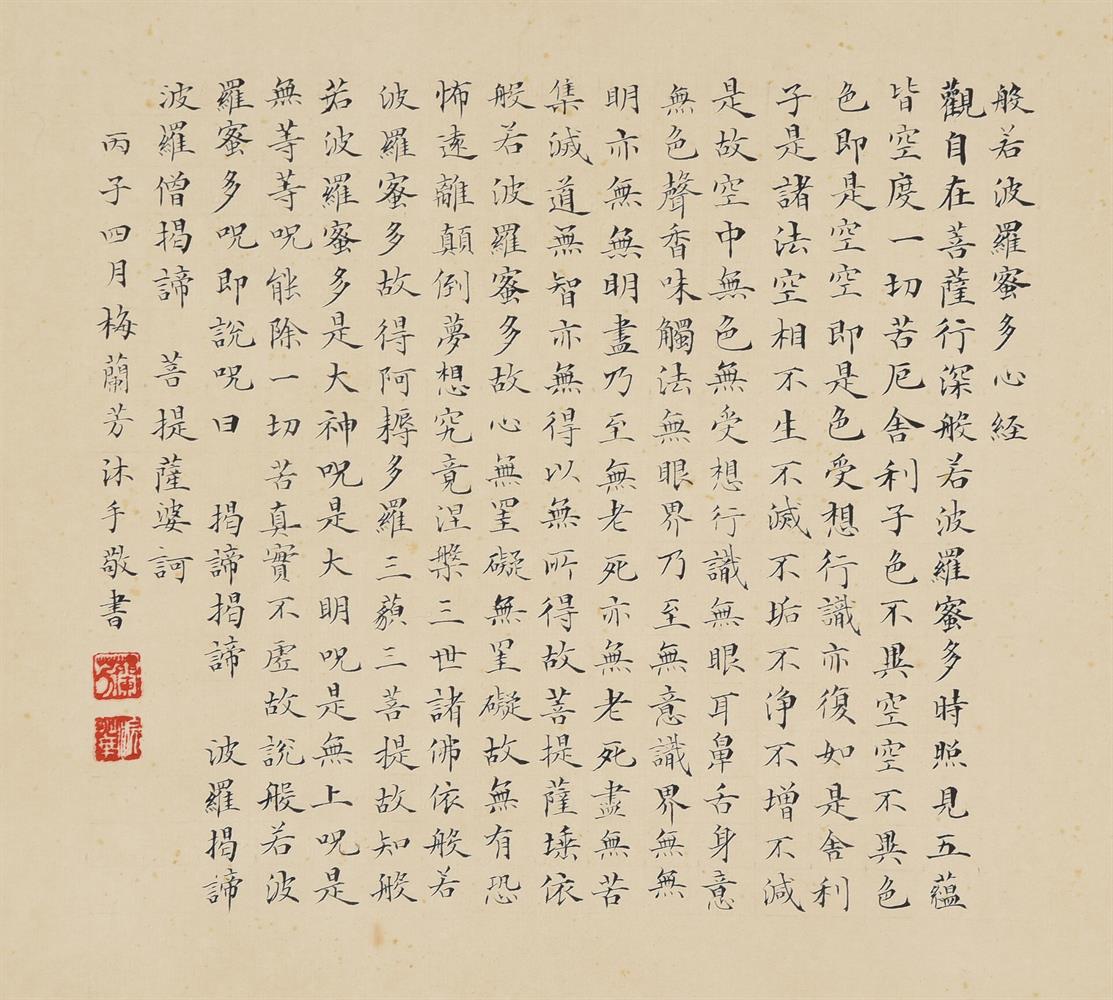 般若波羅蜜多心経
觀自在菩薩行深般若波羅蜜多時照見五蘊
皆空度一切苦厄舍利子色不異空空不異色
色即是空空即是色受想行識亦復如是舍利
子是諸法空相不生不滅不垢不淨不增不減
是故空中無色無受想行識無眼耳鼻舌身意
無色聲香味觸法無眼界乃至無意識界無無
明亦無無明盡乃至無老死亦無老死盡無苦
集滅道無智亦無得以無所得故菩提薩埵依
般若波羅蜜多故心無罣礙無罣礙故無有恐
怖遠離顛倒夢想究竟涅槃三世諸佛依般若
波羅蜜多故得阿耨多羅三藐三菩提故知般
若波羅蜜多是大神呪是大明呪是無上呪是
無等等呪能除一切苦真實不虛故說般若波
羅蜜多呪即說呪曰 揭諦揭諦 波羅揭諦
波羅僧揭諦 菩提薩婆訶
丙子四月梅蘭芳沐手敬書
蘭芳
畹華